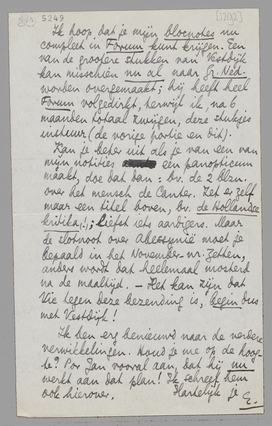 5249
Ik hoop, dat je mijn blocnotes nu
compleet in Forum kunt krijgen. Een
van de grootere stukken van Vestdijk
kan misschien nu al naar Gr. Ned.
worden overgemaakt; hij heeft heel
Forum volgedrift, terwijl ik, na 6
maanden totaal zwijgen, deze stukjes
instuur (de vorige portie en dit).
Kan je beter uit als je van een van
mijn notities een panopticum
maakt, doe dat dan: bv. de 2 blzn.
over het mensch de Canter. Zet er zelf
maar een titel boven, bv. de Hollandse
kritika,!; liefst iets aardigers. Maar
de slotnoot over Abessynië moet je
bepaald in het November-nr. zetten,
anders wordt dat heelemaal mosterd
na de maaltijd. – Het kan zijn dat
Vic tegen deze bezending is, begin dus
met Vestdijk!
Ik ben erg benieuwd naar de verdere
verwikkelingen. Houd je me op de hoog-
te? Por Jan vooral aan, dat hij nu
werkt aan dat plan! Ik schreef hem
ook hierover. Hartelijk je E.